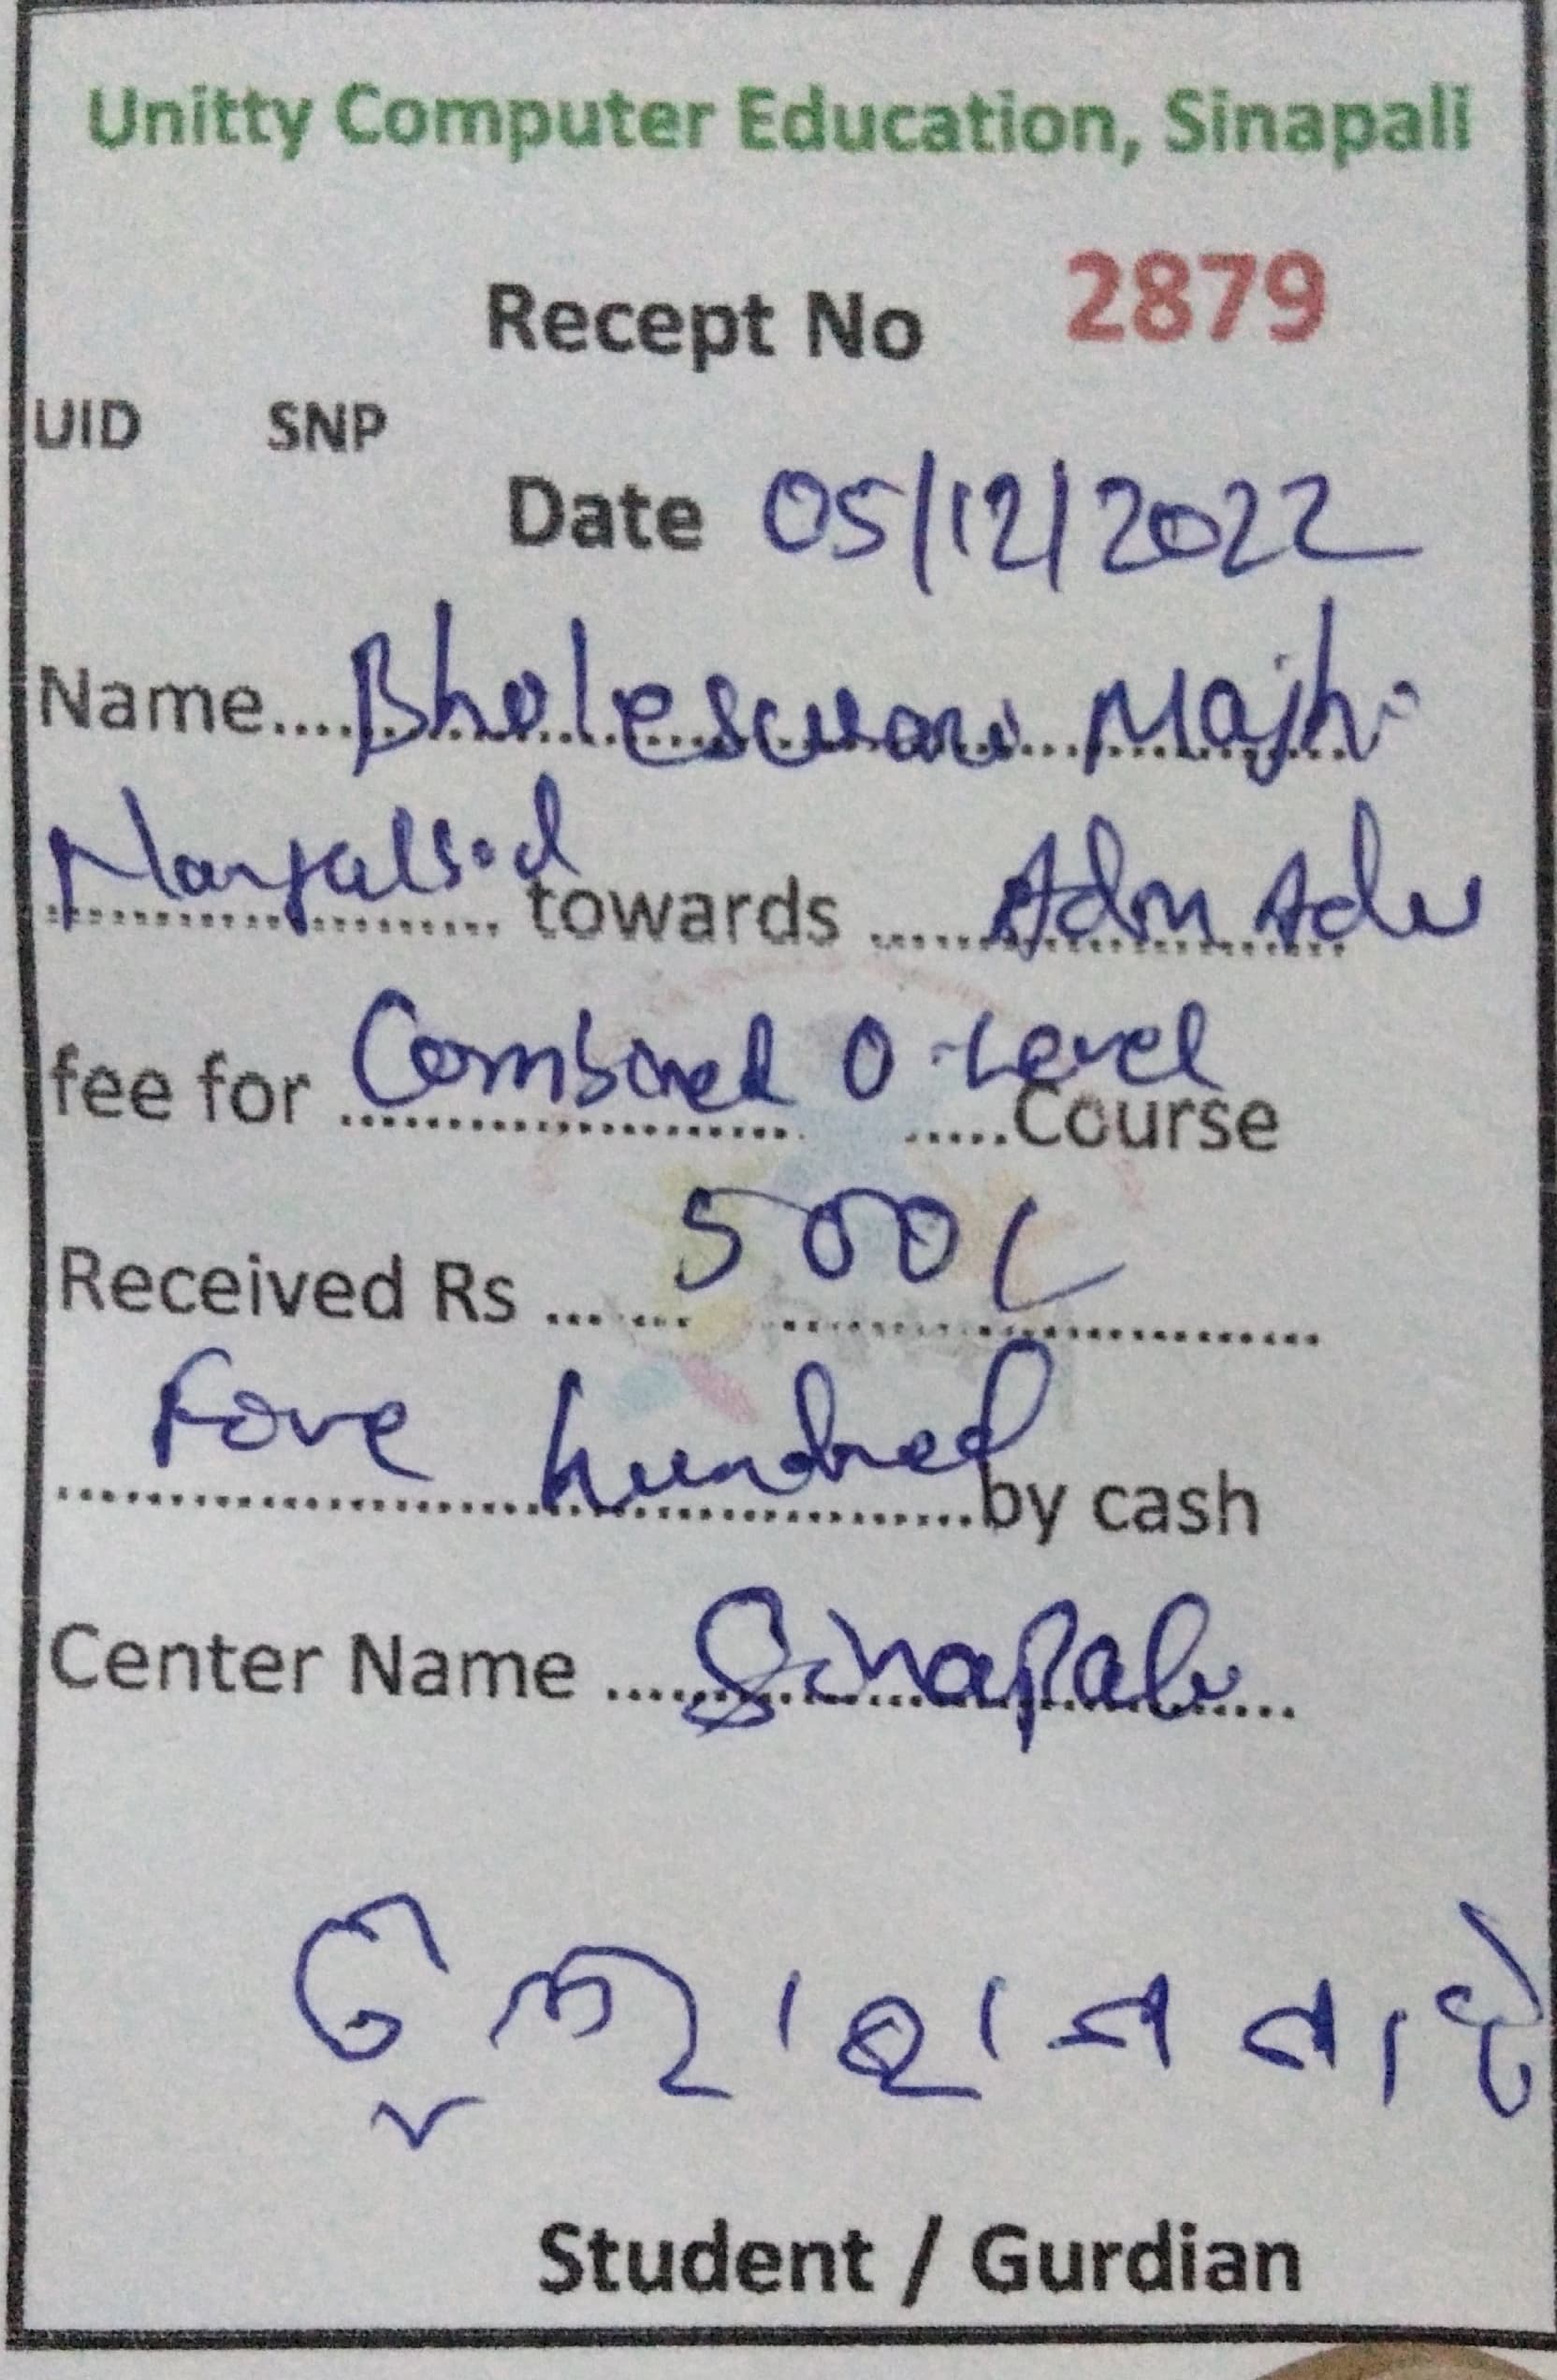 Unitty Computer Education, Sinapali
Recept No 2879
UID SNP
Date 05/12/2022
Name.... Bholeswari Majhi
towards ..... Adm Adv
fee for Combined O-Level
.....Course
Received Rs ... 500/-
Five hundred
by cash
Center Name ..... Sinapali
Student / Gurdian